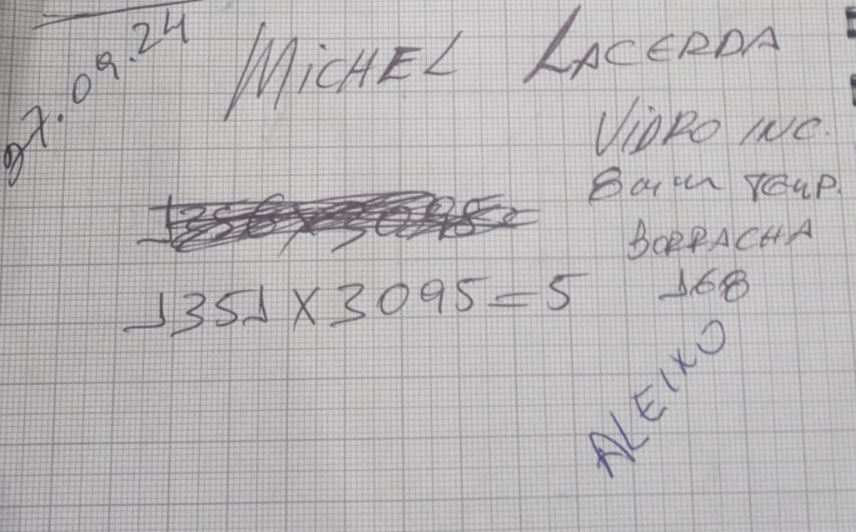 07.09.24
MICHEL LACERDA
VIDRO INC.
8mm TEMP.
BORRACHA
168
1351 X 3095 = 5
ALEIXO